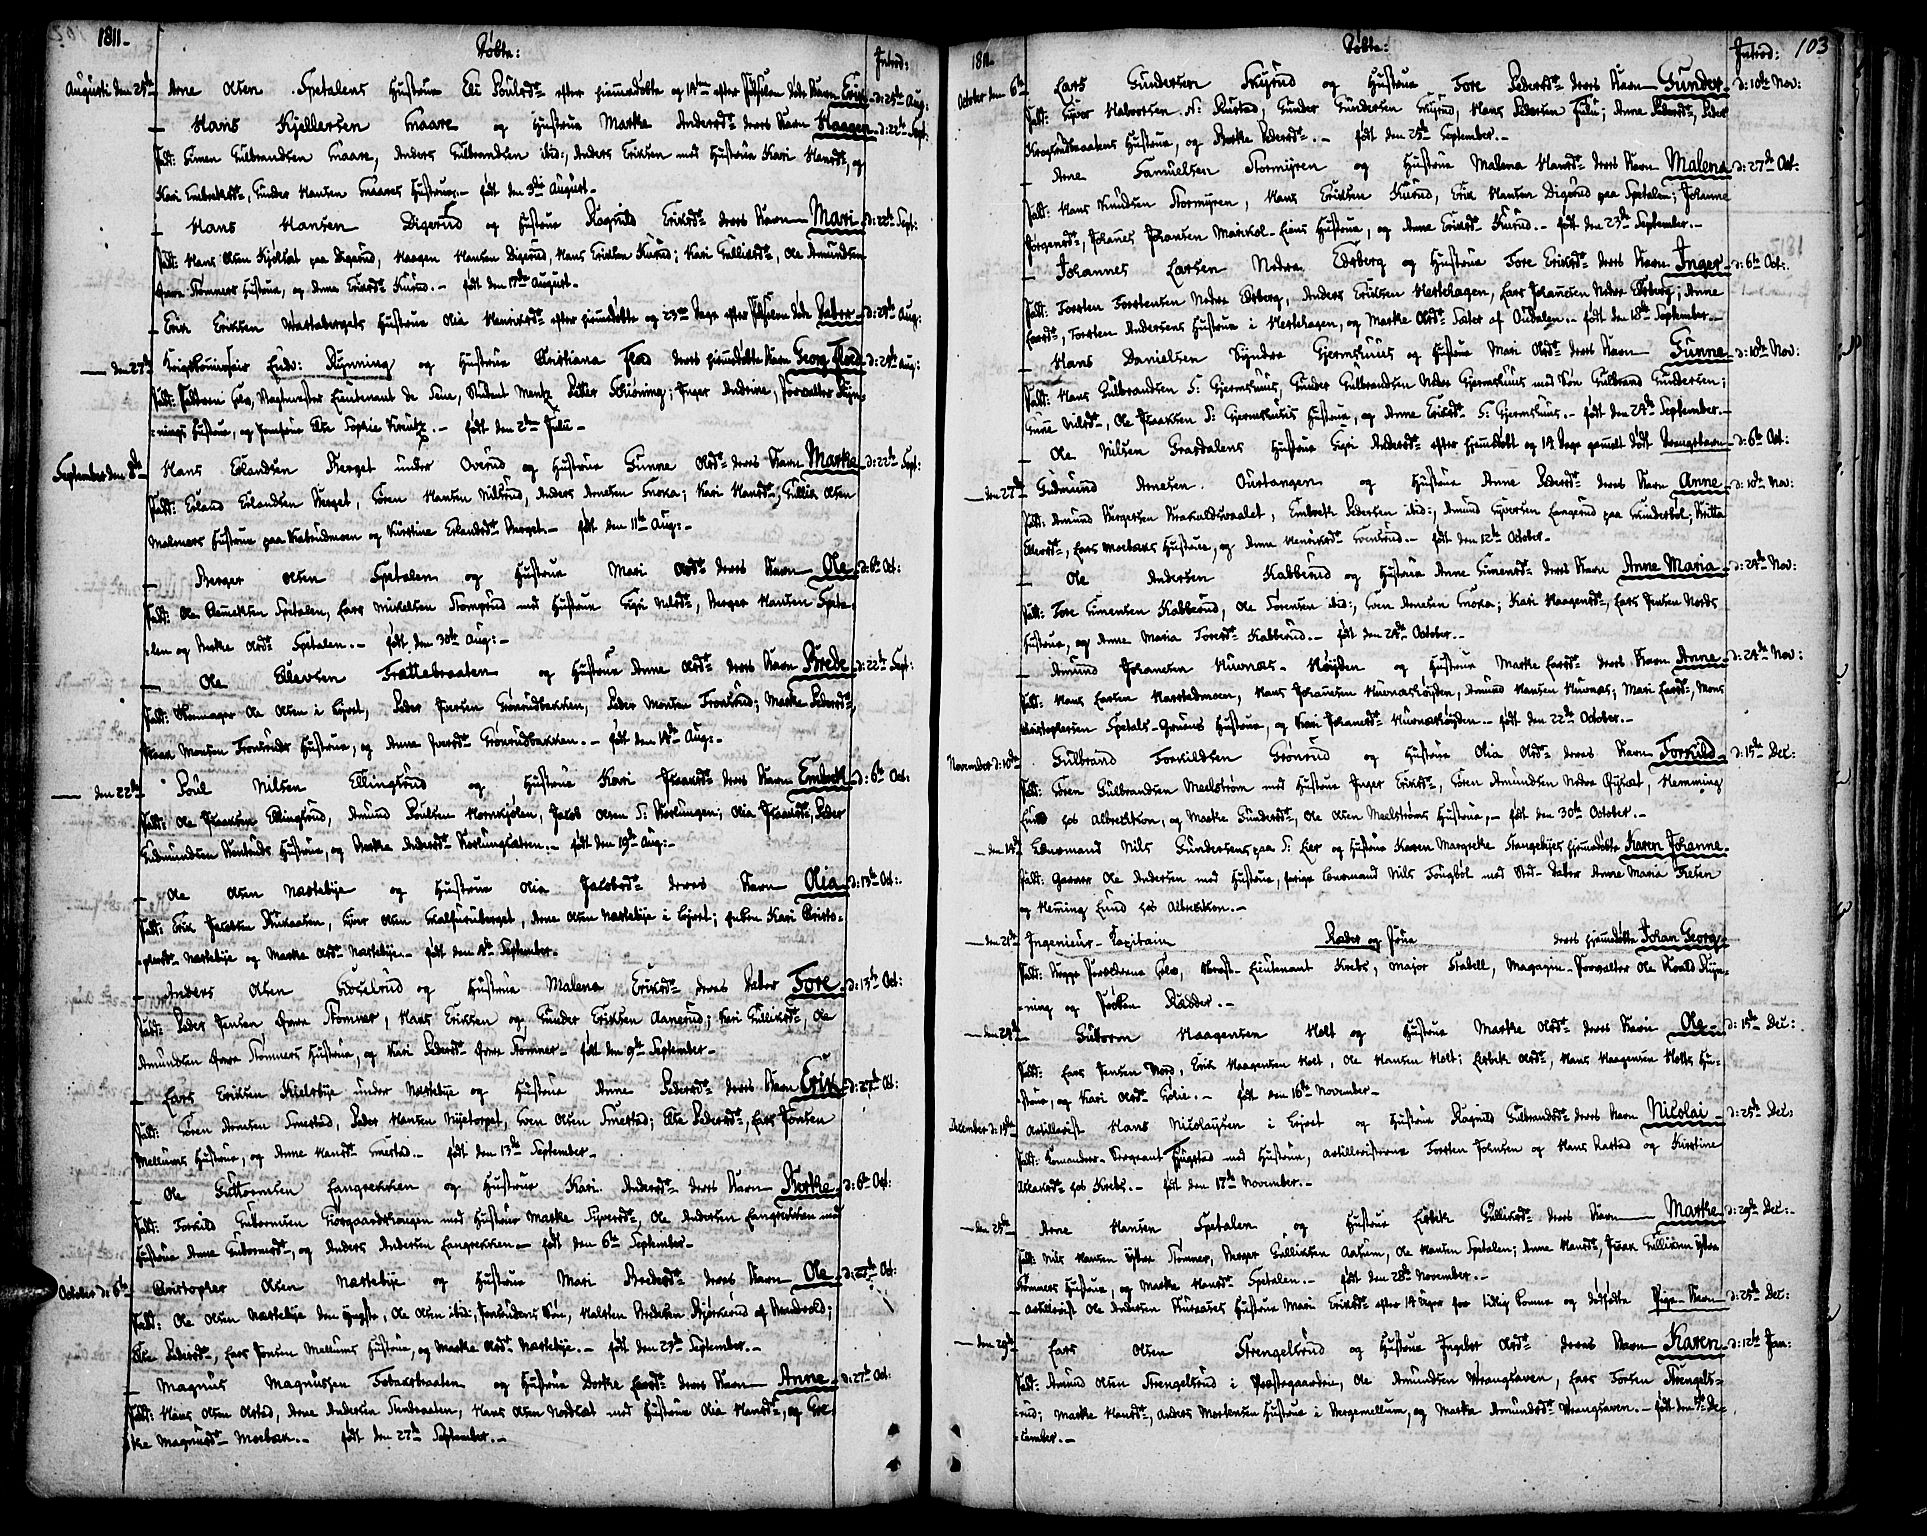 1811.
Döbte:
Introd:
Augusti den 25de Arne Olsen Spetalens Hustrue Eli Poulsdr efter hiemedøbte og 14ten efter Fødselen døde Navn Erik d: 25de Aug:
Hans Kjellersen Gaare og Hustrue Marke Andersdr deres Navn Haagen d: 22de Sept:
Fadd: Simen Gulbrandsen Gaare, Anders Gulbrandsen ibid:, Anders Eriksen med Hustrue Kari Hansdr, og
Kari Embreksdr, Gunder Hansen Gaares Hustrue. født den 3die August.
Hans Hansen Digerud og Hustrue Ragnild Eriksdr deres Navn Mari d: 22de Sept:
Fadd: Hans Olsen Kjölsæt paa Digerud, Haagen Hansen Digerud, Hans Eriksen Kurud; Kari Gulliksdr, Ole Amundsen
Øvre Stømners Hustrue, og Anne Eriksdr Kurud. født den 17de August.
Erik Eriksen Wastabergets Hustrue Olia Henriksdr efter hiemedøbte og 23de Dage efter Fødselen døde Datter d: 25de Aug:
den 27de Krigskommissair Ludv: Rynning og Hustrue Christiana Flod deres hiemedøbte Navn Georg Flod d: 28de Aug:
Fadd: Faderen selv, Vagtmester Lieutenant de Seue, Student Mentz Peter Schiöning; Inger Andrine, Forvalter Ryn-
nings Hustrue, og Jomfrue Else Sophie Kreutz. født den 2den Julii
September den 8de Hans Erlandsen Berget under Overud og Hustrue Gunne Olsdr deres Navn Marke d: 22de Sept:
Fadd: Erland Erlandsen Berget, Sören Hansen Nilsrud, Anders Arnesen Snoxa; Kari Hansdr, Gullik Olsen
Malmers Hustrue paa Kabrudmoen og Kirstine Erlandsdr Berget. født den 11te Aug:
Berger Olsen Spetalen og Hustrue Mari Olsdr deres Navn Ole d: 6te Oct:
Fadd: Ole Clemetsen Spetalen, Lars Mikelsen Stomprud med Hustrue Sigri Nilsdr, Berger Hansen Speta-
len og Berthe Olsdr Spetalen. født den 30te Aug:
Ole Ellevsen Frættebraaten og Hustrue Anne Olsdr deres Navn Brede d: 22de Sept:
Fadd: Skomager Ole Olsen i Leyret, Peder Iversen Grönrudbakken, Peder Monsen Fronsrud; Marke Pedersdr,
Isaak Monsen Fronsruds Hustrue, og Anne Iversdr Grönrudbakken. født den 14de Aug:
den 22de Poul Nilsen Ellingsrud og Hustrue Kari Isaaksdr deres Navn Embrek d: 6te Oct:
Fadd: Ole Isaaksen Ellingsrud, Amund Poulsen Hornkjölen, Jacob Olsen S: Korlungen; Olia Isaaksdr, Peder
Gudmundsen Ruruds Hustrue, og Berthe Andersdr Korlungsætren. født den 19de Aug:
Ole Olsen Næstebye og Hustrue Olia Jacobsdr deres Navn Olia d: 13de Oct:
Fadd: Erik Jacobsen Skuraaten, Syver Olsen Skalfuruberget, Arne Olsen Næstebye i Leyret; Enken Kari Christo-
phersdr Næstebye og Marke Olsdr Næstebye. født den 4de September.
Anders Olsen Goselrud og Hustrue Malena Eriksdr deres Datter Tore d: 13de Oct:
Fadd: Peder Jensen Øvre Stømner, Hans Eriksen og Gunder Eriksen Aanerud; Kari Gulliksdr, Ole
Amundsen Øvre Stømners Hustrue, og Kari Pedersdr Øvre Stømner. født den 9de September.
Lars Eriksen Kielsbye under Næstebye og Hustrue Anne Pedersdr deres Navn Erik d: 27de Oct:
Fadd: Sören Arnesen Smestad, Peder Hansen Nyetorpet, Sven Olsen Smestad; Else Pedersdr, Lars Jonsen
Mellums Hustrue, og Anne Hansdr Smestad. født den 13de September.
Ole Guttormsen Langrekken og Hustrue Kari Andersdr deres Navn Berthe d: 6te Oct:
Fadd: Torkild Guttormsen Giorgaardshougen med Hustrue Marke Syversdr, Ole Andersen Langrekken med
Hustrue Anne Guttormsdr, og Anders Andersen Langrekken. født den 6te September.
October d: 6te Christopher Olsen Næstebye og Hustrue Mari Bredesdr deres Navn Ole d: 20de Oct:
Fadd: Ole Olsen Næstebye den Yngste, Ole Olsen ibid:, Forrudens Søn, Halsten Bredesen Bjørkerud af Brandvold;
Else Pedersdr, Lars Jonsen Mellums Hustrue, og Marke Olsdr Næstebye. født den 29de September.
Magnus Magnussen Totaksbraaten og Hustrue Dorthe Larsdr deres Navn Anne d: 27de Oct:
Fadd: Hans Olsen Olstad, Arne Andersen Stubraaten, Hans Olsen Nordset med Hustrue Olia Hansdr, og Gre-
the Magnusdr Moebæk. født den 22de September.
1811.
Döbte:
Introd: 103
October den 6te Lars Gundersen Skyrud og Hustrue Tore Pedersdr deres Navn Gunder d: 10de Nov:
Fadd: Syver Halvorsen N: Rustad, Gunder Gundersen Skyrud, Hans Pedersen Fulu; Anne Pedersdr, Peder
Krogsrudbraatens Hustrue, og Berthe Pedersdr. født den 25de September.
Arne Samuelsen Stormyren og Hustrue Malena Hansdr deres Navn Malena d: 27de Oct:
Fadd: Hans Knudsen Stormyren, Hans Eriksen Kurud, Erik Hansen Digerud paa Spetalen; Johanne
Jørgensdr, Johanes Johansen Marikol-Eiens Hustrue, og Anne Eriksdr Kurud. født den 23de September.
Johannes Larsen Nedre Edsberg og Hustrue Tore Eriksdr deres Navn Inger d: 6te Oct:
Fadd: Torsten Torstensen Nedre Edsberg, Anders Eriksen Hestehagen, Lars Johannesen Nedre Edsberg; Anne
Larsdr, Torsten Andersens Hustrue i Hestehagen, og Marke Olsdr Sæter af Oudalen. født den 18de September.
Hans Danielsen Syndre Gjermshuus og Hustrue Mari Olsdr deres Navn Gunne d: 10de Nov:
Fadd: Hans Gulbrandsen S: Gjermshuus, Gunder Gulbrandsen Nedre Gjermshuus med Søn Gulbrand Gundersen;
Gunne Nilsdr, Ole Isaaksen S: Gjermshuus Hustrue, og Anne Eriksdr S: Gjermshuus. født den 24de September.
Ole Nilsen Grasdalens Hustrue Sigri Andersdr efter hjemedøbt og 14 Dage gamelt dødt Drengebarn d: 6te Oct:
den 27de Gudmund Arnesen Ourtangen og Hustrue Anne Pedersdr deres Navn Anne d: 10de Nov:
Fadd: Amund Bergersen Krakuldsvaalet, Embrek Pedersen ibid:, Amund Syversen Langerud paa Grinderbøl; Kitta
Ellevsdr, Lars Moebæks Hustrue, og Anne Henriksdr Svensrud. født den 12te October.
Ole Andersen Kabberud og Hustrue Anne Simensdr deres Navn Anne Maria d: 24de Nov:
Fadd: Tore Simensen Kabberud, Ole Sörensen ibid:, Sven Arnesen Snoxa; Kari Haagensdr, Lars Jensen Nords
Hustrue, og Anne Maria Toresdr Kabberud. født den 24de October.
Amund Johansen Huvnæs-Høyden og Hustrue Marke Larsdr deres Navn Anne d: 24de Nov:
Fadd: Hans Larsen Harstadmoen, Hans Johansen Huvnæshøyden, Amund Hansen Huvnæs; Mari Larsdr, Mons
Christophersen Spetals-Gruens Hustrue, og Kari Johannesdr Huvnæshøyden. født den 22de October.
November d: 10de Gulbrand Torkildsen Grönrud og Hustrue Olia Olsdr deres Navn Torkild d: 15de Dec:
Fadd: Sören Gulbrandsen Meelstrøm med Hustrue Inger Eriksdr, Sören Amundsen Nedre Øyset, Hemming
Lund hos Albrektson, og Marke Gundersdr, Ole Olsen Meelstrøms Hustrue, født den 30te October.
den 14de Lensmand Nils Gundersen paa S: Lier og Hustrue Karen Margrethe Stangebyes hjemdøbte Karen Johanne
Fadd: Garver Ole Andersen med Hustrue, forige Lensmand Nils Songböl med Sted-Datter Anne Maria Fiesen
og Hemming Lund hos Albrektson.
den 21de Ingenieur-Kapitain Ræder og Frue deres hjemdøbte Johan Georg
Fadd: Begge Forældrene selv, Oberst-Lieutenant Krebs, Major Stabell, Magazin-Forvalter Ole Roald Ryn-
ning og Frøken Rædder.
den 24de Guttorm Haagensen Holt og Hustrue Marke Olsdr deres Navn Ole d: 15de Dec:
Fadd: Lars Jensen Nord, Erik Haagensen Holt, Ole Hansen Holt; Lisbeth Olsdr, Hans Haagensen Holts Hu-
strue, og Kari Olsdr Golie. født den 16de November.
December d: 15de Artillerist Hans Nicolaysen i Leyret og Hustrue Ragnild Gulbrandsdr deres Navn Nicolai d: 25de Dec:
Fadd: Komandeer-Sergeant Fjugstad med Hustrue, Artilleristerne Torsten Johnsen og Hans Rastad og Kirstine
Aslaksdr hos Krebs. født den 17de November.
den 25de Arne Hansen Spetalen og Hustrue Lisbeth Gulliksdr deres Navn Marke d: 29de Dec:
Fadd: Nils Hansen Østre Stømner, Berger Gulliksen Aasum, Ole Hansen Spetalen; Anne Hansdr, Isaak Gulliksen Østre
Stømners Hustrue, og Marke Hansdr Spetalen. født den 28de November.
Artillerist Ole Andersen Kuraases Hustrue Mari Eriksdr efter 14 Uger for tidlig komne og dødfødte Pige-Navn d: 25de Dec:
den 29de Lars Olsen Strengelsrud og Hustrue Ingebor Olsdr deres Navn Karen d: 12te Jan:
Fadd: Amund Olsen Strengelsrud i Præstegaarden, Ole Amundsen Wranghaven, Lars Torsen Strengels-
rud; Marke Hansdr, Anders Mortensens Hustrue i Bergemellum, og Marke Amundsdr Wranghaven. født den 7de De-
cember.